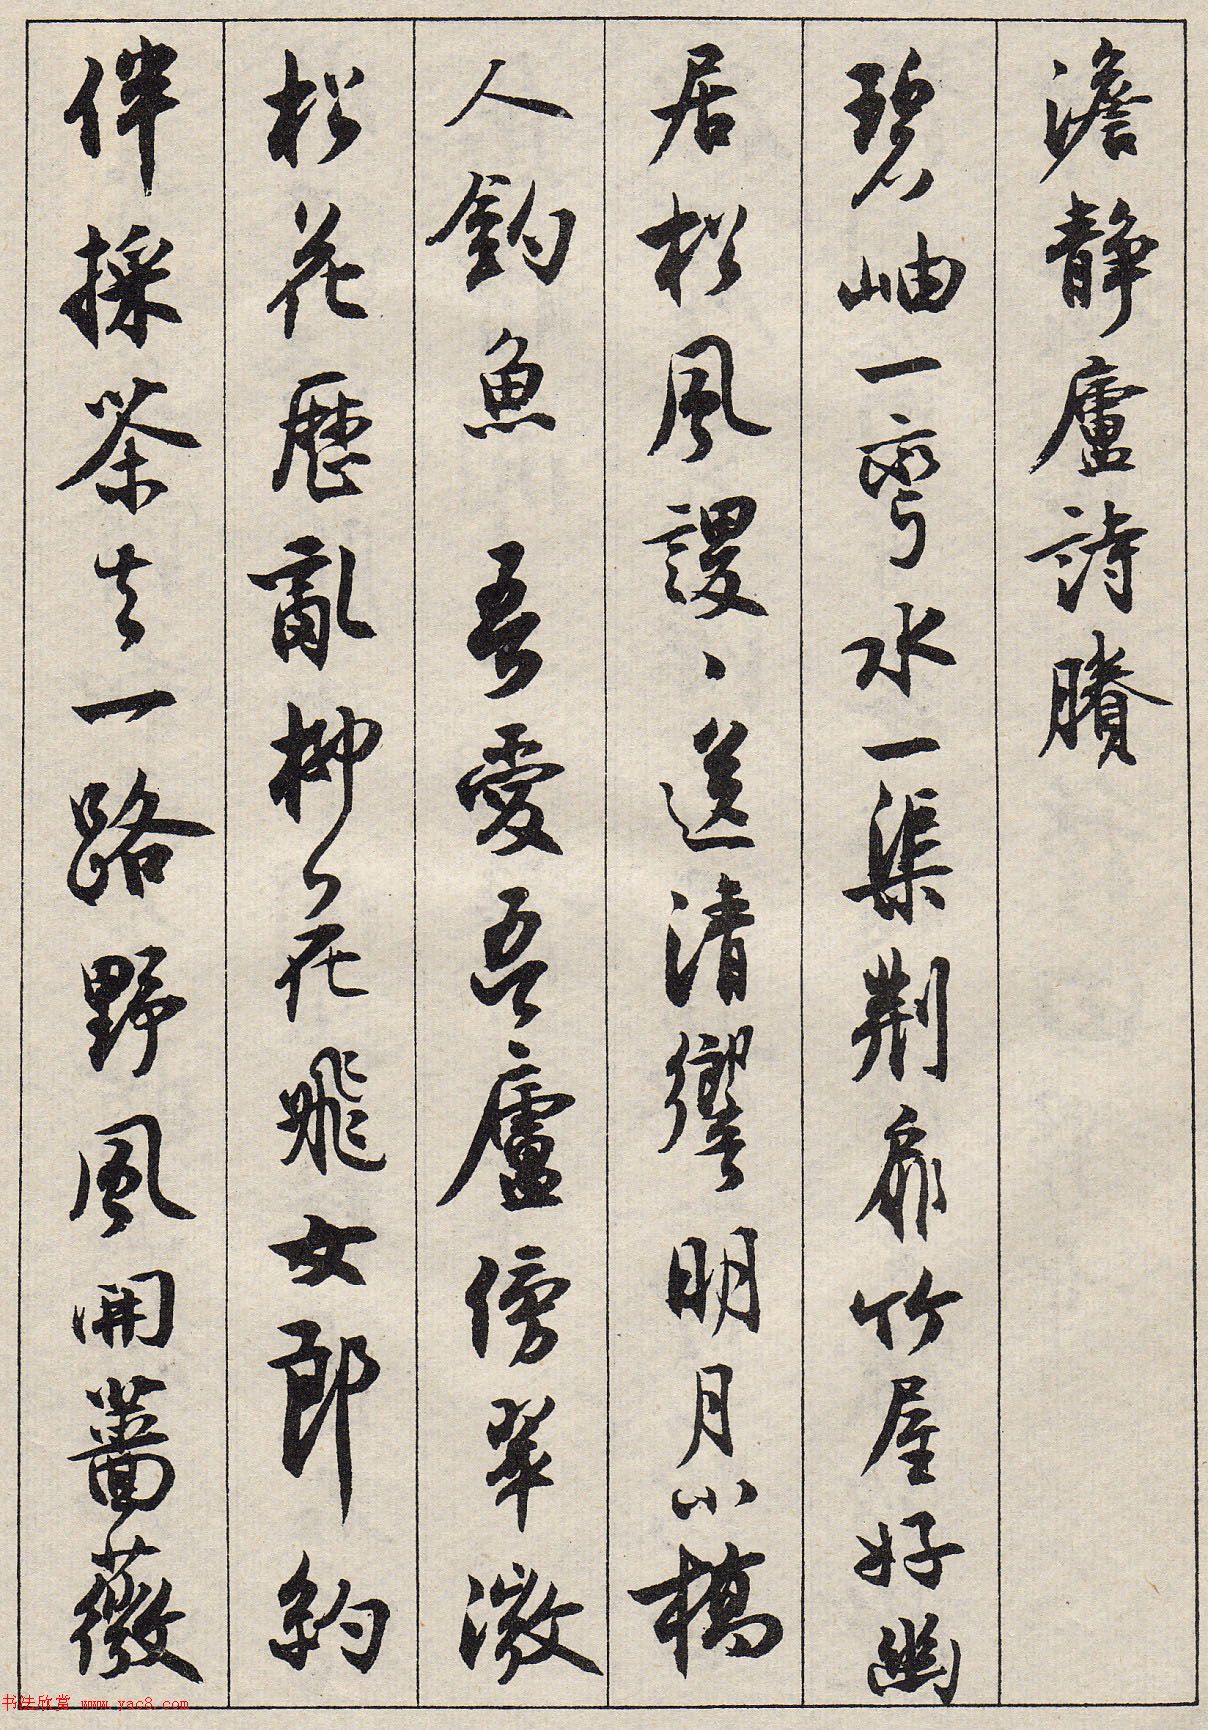 澹靜廬詩賸
碧岫一彎水一渠荆扉竹屋好幽
居松風謖、送清響明月小橋
人釣魚 吾愛吾廬傍翠微
松花歷亂柳花飛女郎約
伴採茶去一路野風開薔薇
书法欣赏 www.yac8.com